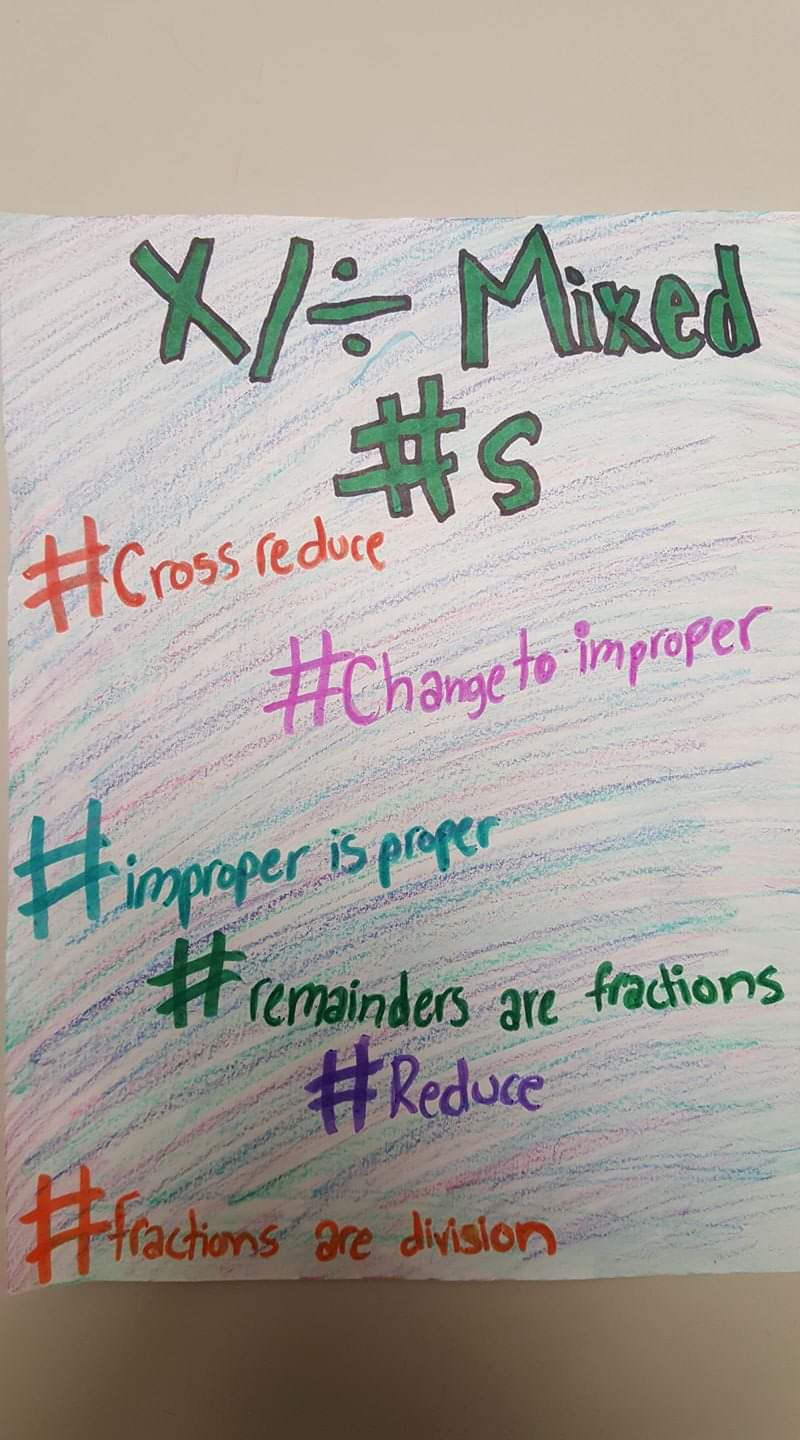 X/÷ Mixed
#s
#Cross reduce
#Change to improper
#improper is proper
#remainders are fractions
#Reduce
#fractions are division